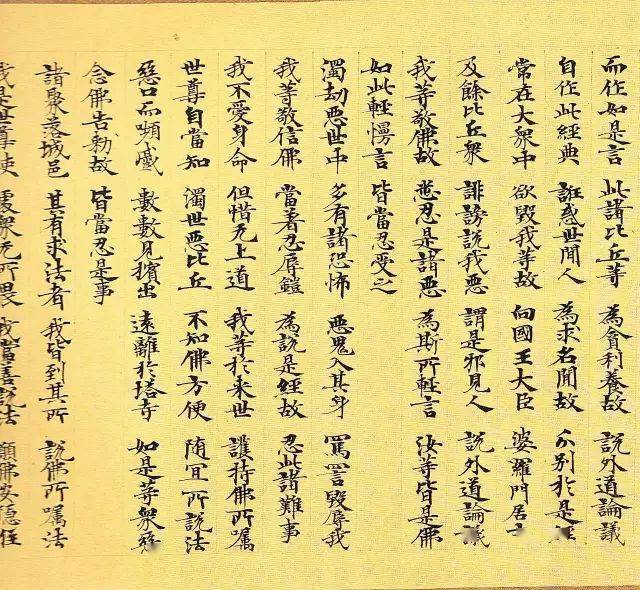 而作如是言 此諸比丘等 為貪利養故 說外道論議
自作此經典 誑惑世間人 為求名聞故 分別於是經
常在大衆中 欲毀我等故 向國王大臣 婆羅門居士
及餘比丘衆 誹謗說我惡 謂是邪見人 說外道論議
我等敬佛故 悉忍是諸惡 為斯所輕言 汝等皆是佛
如此輕慢言 皆當忍受之
濁劫惡世中 多有諸恐怖 惡鬼入其身 罵詈毀辱我
我等敬信佛 當著忍辱鎧 為說是經故 忍此諸難事
我不愛身命 但惜无上道 我等於来世 護持佛所囑
世尊自當知 濁世惡比丘 不知佛方便 随宜所說法
惡口而頻蹙 數數見擯出 遠離於塔寺 如是等衆惡
念佛告勅故 皆當忍是事
諸聚落城邑 其有求法者 我皆到其所 說佛所囑法
我是世尊使 處衆无所畏 我當善說法 願佛安隱住